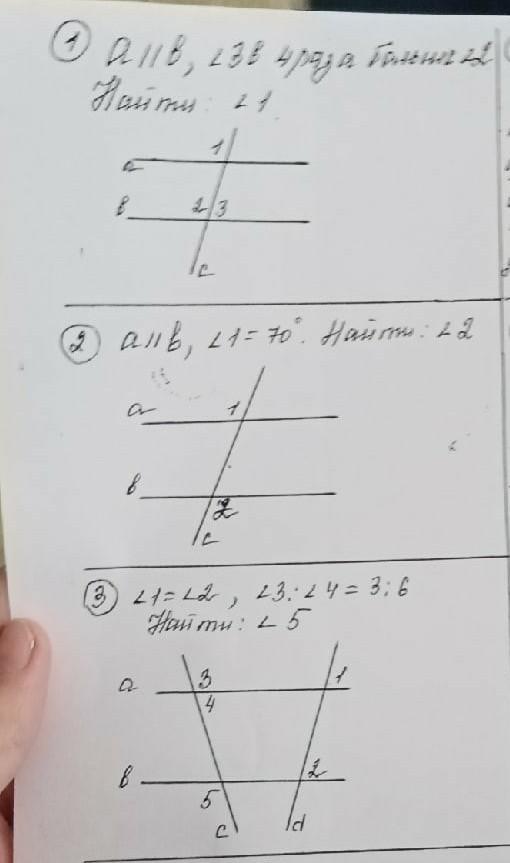 1 a || b, ∠3 в 4 раза больше ∠2
Найти: ∠1
1
a
в 2 3
c
2 a || b, ∠1 = 70°. Найти: ∠2
a 1
в
2
c
3 ∠1 = ∠2, ∠3 : ∠4 = 3 : 6
Найти: ∠5
a 3 1
4
в 2
5
c d